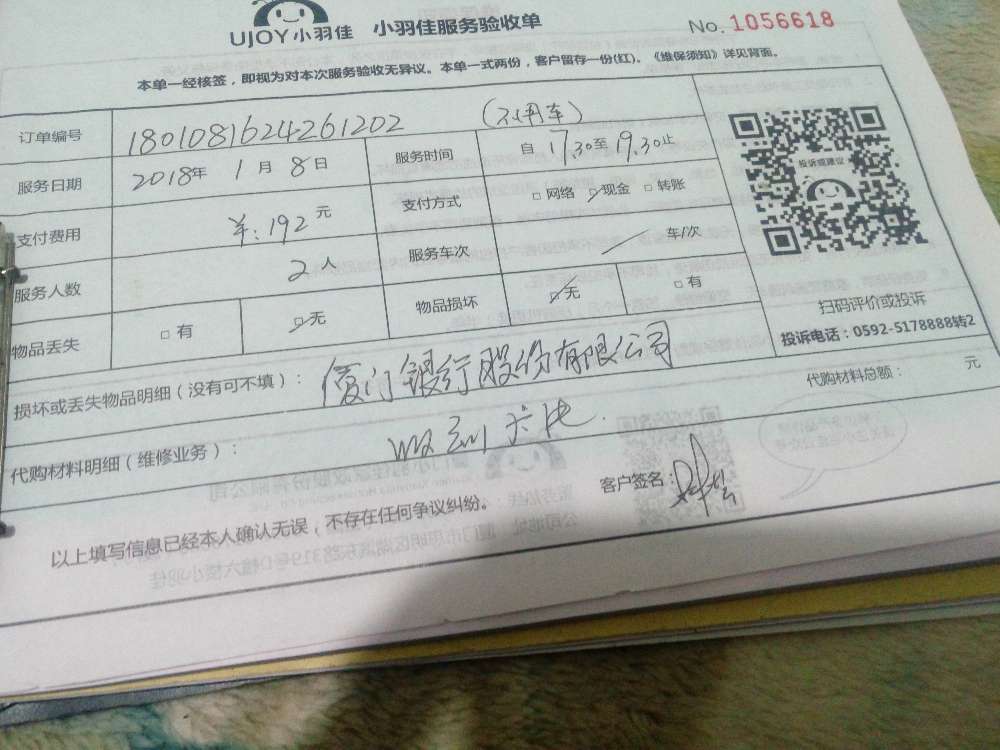 UJOY小羽佳 小羽佳服务验收单 No. 1056618
本单一经核签，即视为对本次服务验收无异议。本单一式两份，客户留存一份(红)。《维保须知》详见背面。
订单编号 1801081624261202
服务日期 2018年 1月 8日 服务时间 自 17.30至 19.30止
支付费用 ￥:192元 支付方式 □网络 ☑现金 □转账
服务人数 2人 服务车次 / 车/次
物品丢失 □有 ☑无 物品损坏 ☑无 □有
投诉或建议
扫码评价或投诉
投诉电话：0592-5178888转2
损坏或丢失物品明细（没有可不填）： 厦门银行股份有限公司
代购材料总额： 元
代购材料明细（维修业务）：
客户签名：
以上填写信息已经本人确认无误，不存在任何争议纠纷。